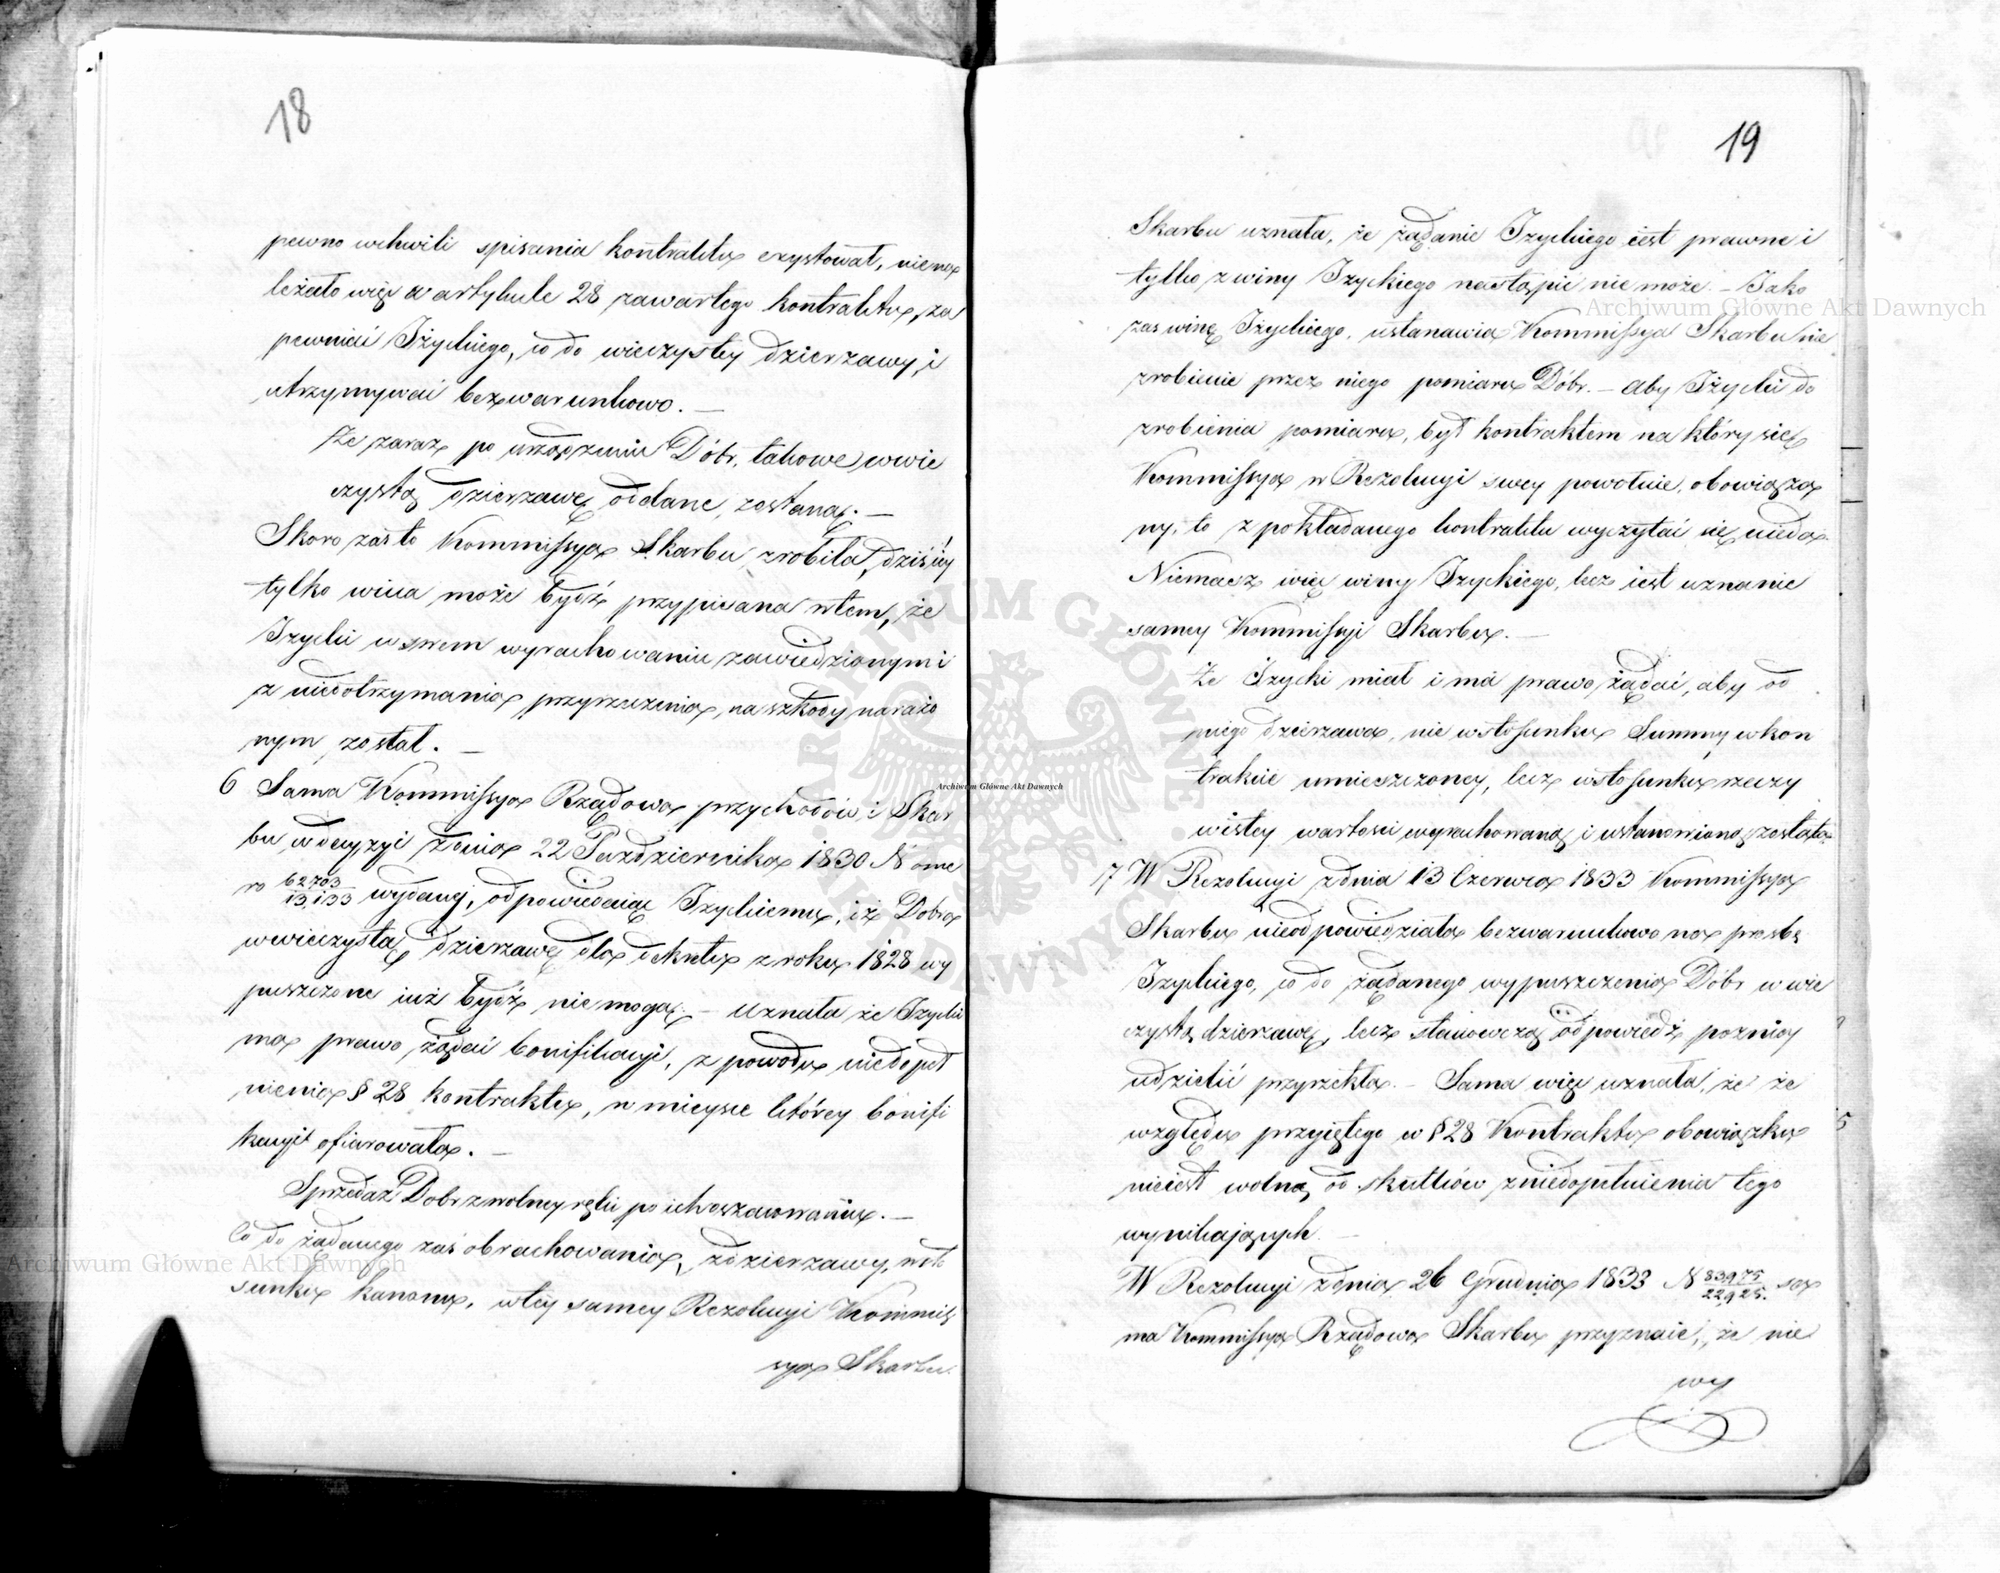 18
pewno wchwili spisania kontraktu exystował, niena
leżało więc w artykule 28 zawartego kontraktu, za
pewnieć Iżyckiego, co do wieczystey dzierzawy, i
utrzymywać bezwarunkowo. —
że zaraz po urządzeniu Dóbr, takowe wwie
czystą dzierzawę oddane, zostaną. —
Skoro zaś to Kommissya Skarbu zrobiła, dziś iey
tylko wina może bydź przypisana wtem, że
Izycki w swem wyrachowaniu zawiedzionym i
z niedotrzymania przyrzeczenia, na szkody narażo
nym został. —
6 Sama Kommissya Rządowa przychodów i Skar
bu w decyzyi zdnia 22 Października 1830 Nume
ro 62703/13,133 wydaney, odpowiedaiąc Izyckiemu, iż Dobra
wwieczystą dzierzawę dla dekretu z roku 1828 wy
puszczone iuż bydź nie mogą. — Uznała że Izycki
ma prawo żądać bonifikacyi, z powodu niedopeł
nienia § 28 kontraktu, w mieysce którey bonifi
kacyi ofiarowała. —
Sprzedaż Dobr z wolney ręki po ich oszacowaniu. —
Co do żądanego zaś obrachowania, zdzierzawy, wsto
sunku kanonu, wtey samey Rezolucyi Kommis
sya Skarbu
19
Skarbu uznała, że żądanie Izyckiego iest prawne i
tylko z winy Izyckiego nastąpić nie może. — Jako
zaś winę Iżyckiego, ustanawia Kommissya Skarbu nie
zrobienie przez niego pomiaru Dóbr. — aby Iżycki do
zrobienia pomiaru, był kontraktem na który się
Kommissya w Rezolucyi swey powołuie, obowiąza
ny, to z pokładanego kontraktu wyczytać się nieda.
Niemasz więc winy Izyckiego, lecz iest uznanie
samey Kommissyi Skarbu. —
że Izycki miał i ma prawo, żądać, aby od
niego dzierzawa, nie wstosunku Summy wkon
trakcie umieszczoney, lecz wstosunku rzeczy
wistey wartości wyrachowaną i ustanowioną została.
7 W Rezolucyi zdnia 13 Czerwca 1833 Kommissya
Skarbu nieodpowiedziała bezwarunkowo na prosbę
Izyckiego, co do żądanego wypuszczenia Dóbr w wie
czystą dzierzawę, lecz stanowczą odpowiedź pozniey
udzielić przyrzekła. — Sama więc uznała, że ze
względu przyiętego w § 28 Kontraktu obowiązku
nieiest wolną od skutków zniedopełnienia tego
wynikaiących. —
W Rezolucyi zdnia 26 Grudnia 1833 N 83975/22925. sa
ma Kommissya Rządowa Skarbu przyznaie, że nie
wy
Archiwum Główne Akt Dawnych
Archiwum Główne Akt Dawnych
Archiwum Główne Akt Dawnych
ARCHIWUM GŁÓWNE AKT DAWNYCH